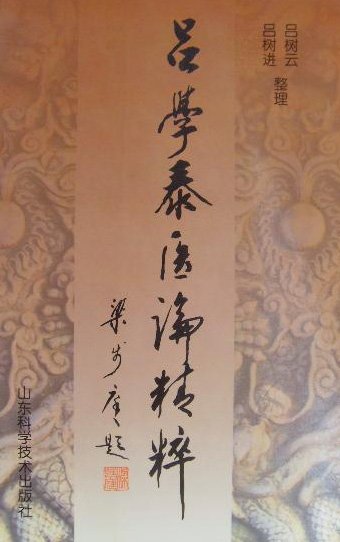 吕树云
吕树进 整理
吕學泰医論精粹
梁步庭题
山东科学技术出版社